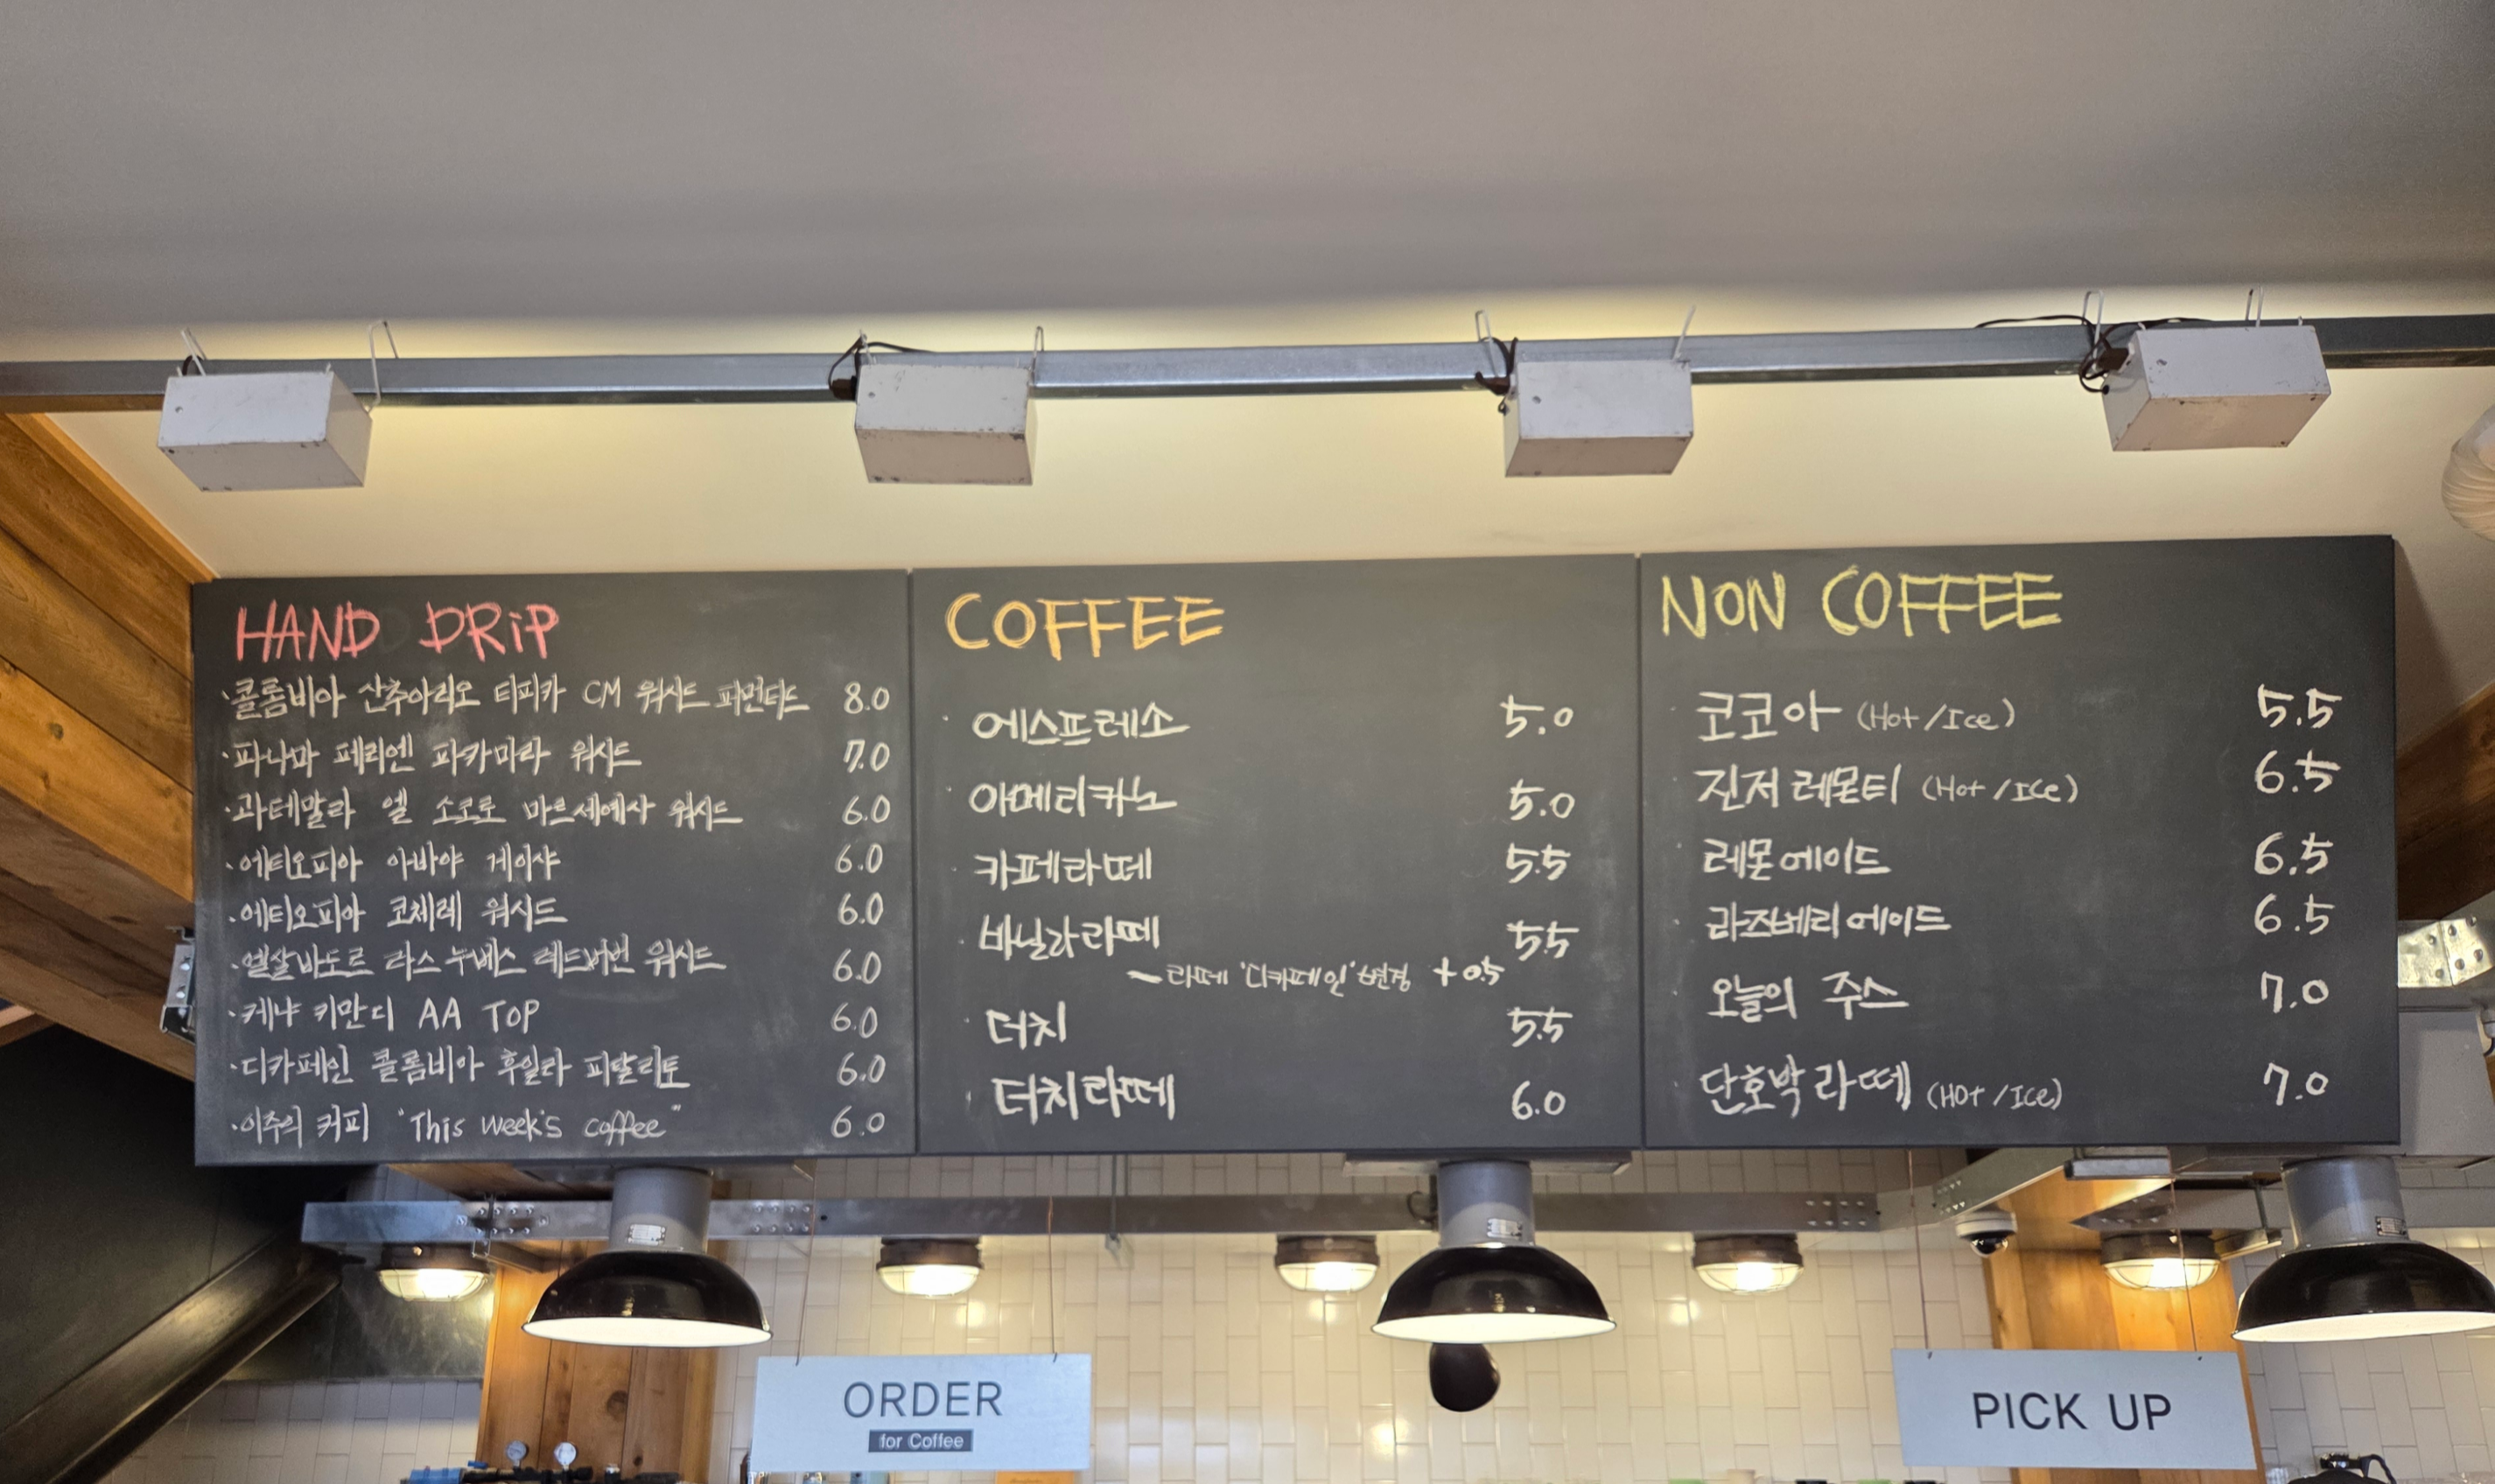 HAND DRiP
·콜롬비아 산추아리오 티피카 CM 워시드 퍼먼티드 8.0
·파나마 페리엔 파카마라 워시드 7.0
·과테말라 엘 소코로 마르세예사 워시드 6.0
·에티오피아 아바야 게이샤 6.0
·에티오피아 코체레 워시드 6.0
·엘살바도르 라스누베스 레드버번 워시드 6.0
·케냐 키만디 AA TOP 6.0
·디카페인 콜롬비아 후일라 피탈리토 6.0
·이주의 커피 "This week's coffee" 6.0
COFFEE
· 에스프레소 5.0
· 아메리카노 5.0
· 카페라떼 5.5
· 바닐라라떼 5.5
~ 라떼 '디카페인' 변경 +0.5
· 더치 5.5
· 더치라떼 6.0
NON COFFEE
· 코코아 (Hot/Ice) 5.5
· 진저레몬티 (Hot/ICe) 6.5
· 레몬에이드 6.5
· 라즈베리에이드 6.5
· 오늘의 주스 7.0
· 단호박라떼 (HOt/ICe) 7.0
ORDER
for Coffee
PICK UP